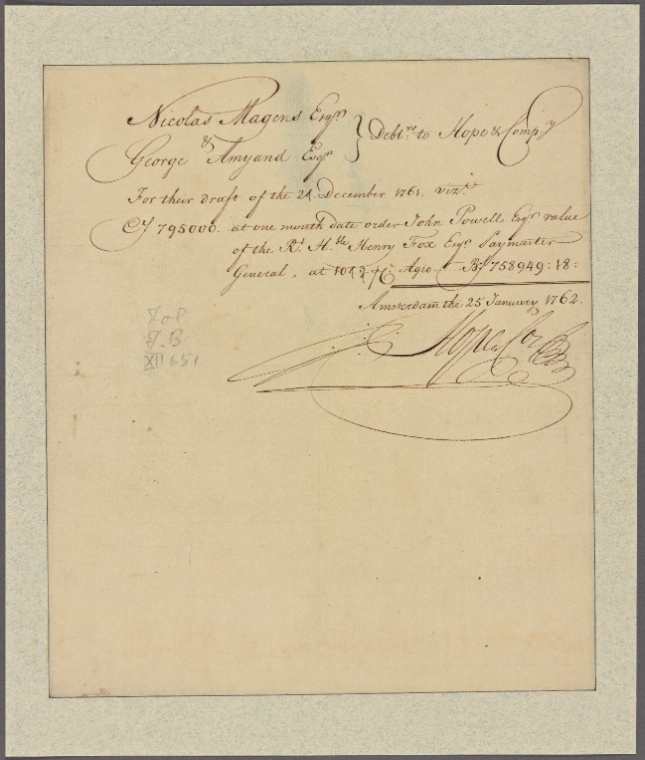 Nicolas Magens Esqr.
&
George Amyand Esqr
Debtrs to Hope & Compy
For their draft of the 24 December 1761. vizt.
Cy 795000. at one month date order John Powell Esqr value
of the Rt. H.ble Henry Fox Esqr Paymaster
General, at Agio By 758949:18:
Amsterdam the 25 January 1762.
Hope & Co
XII 651